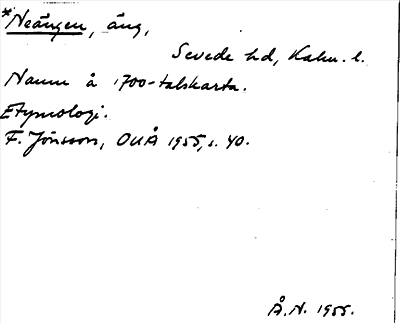 *Neängen, äng,
Sevede hd, Kalm. l.
Namn å 1700-talskarta.
Etymologi.
F. Jönsson, OUÅ 1955, s. 40.
Å.N. 1955.